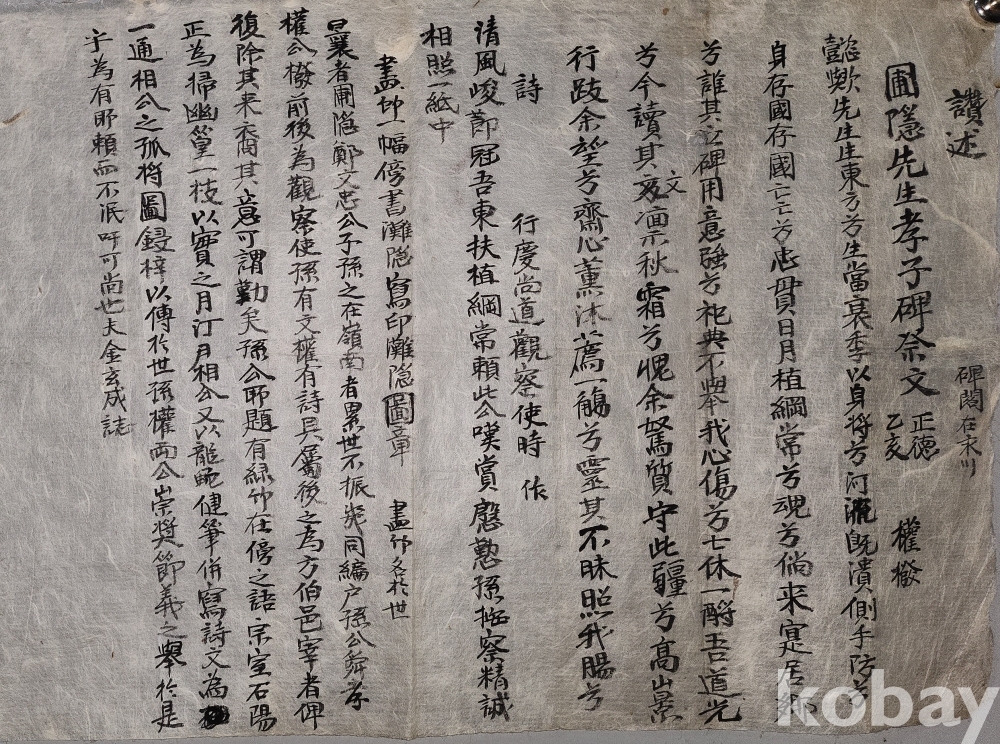 讚述
圃隱先生孝子碑祭文 正德乙亥 權撥
碑閣在永川
懿歟先生生東方兮生當衰季以身將兮河流旣潰側手防兮
身存國存國亡亡兮忠貫日月植綱常兮魂兮倘来寔居鄉
兮誰其立碑用意強兮祀典不擧我心傷兮士休一酹吾道光
兮今讀其文凛秋霜兮愧余駑質守此疆兮高山景
行跂余望兮齋心薰沐薦一觴兮靈其不昧照我腸兮
詩 行慶尚道觀察使時作
清風峻節冠吾東扶植綱常頼此公嘆賞慇懃孫按察精誠
相照一紙中
畵竹一幅傍書灘隐寫印灘隐圖章 畵竹名於世
曩者圃隐鄭文忠公子孫之在嶺南者累世不振幾同編戶孫公舜孝
權公撥前後為觀察使孫有文權有詩具屬後之為方伯邑宰者俾
復除其来裔其意可謂勤矣孫公所題有緑竹在傍之語宗室石陽
正為掃幽篁一枝以實之月汀月相公又以龍蛇健筆併寫詩文為
一通相公之孤將圖鋟梓以傳於世孫權兩公崇奬節義之擧於是
乎為有所頼而不泯吁可尚也夫金玄成誌
kobay